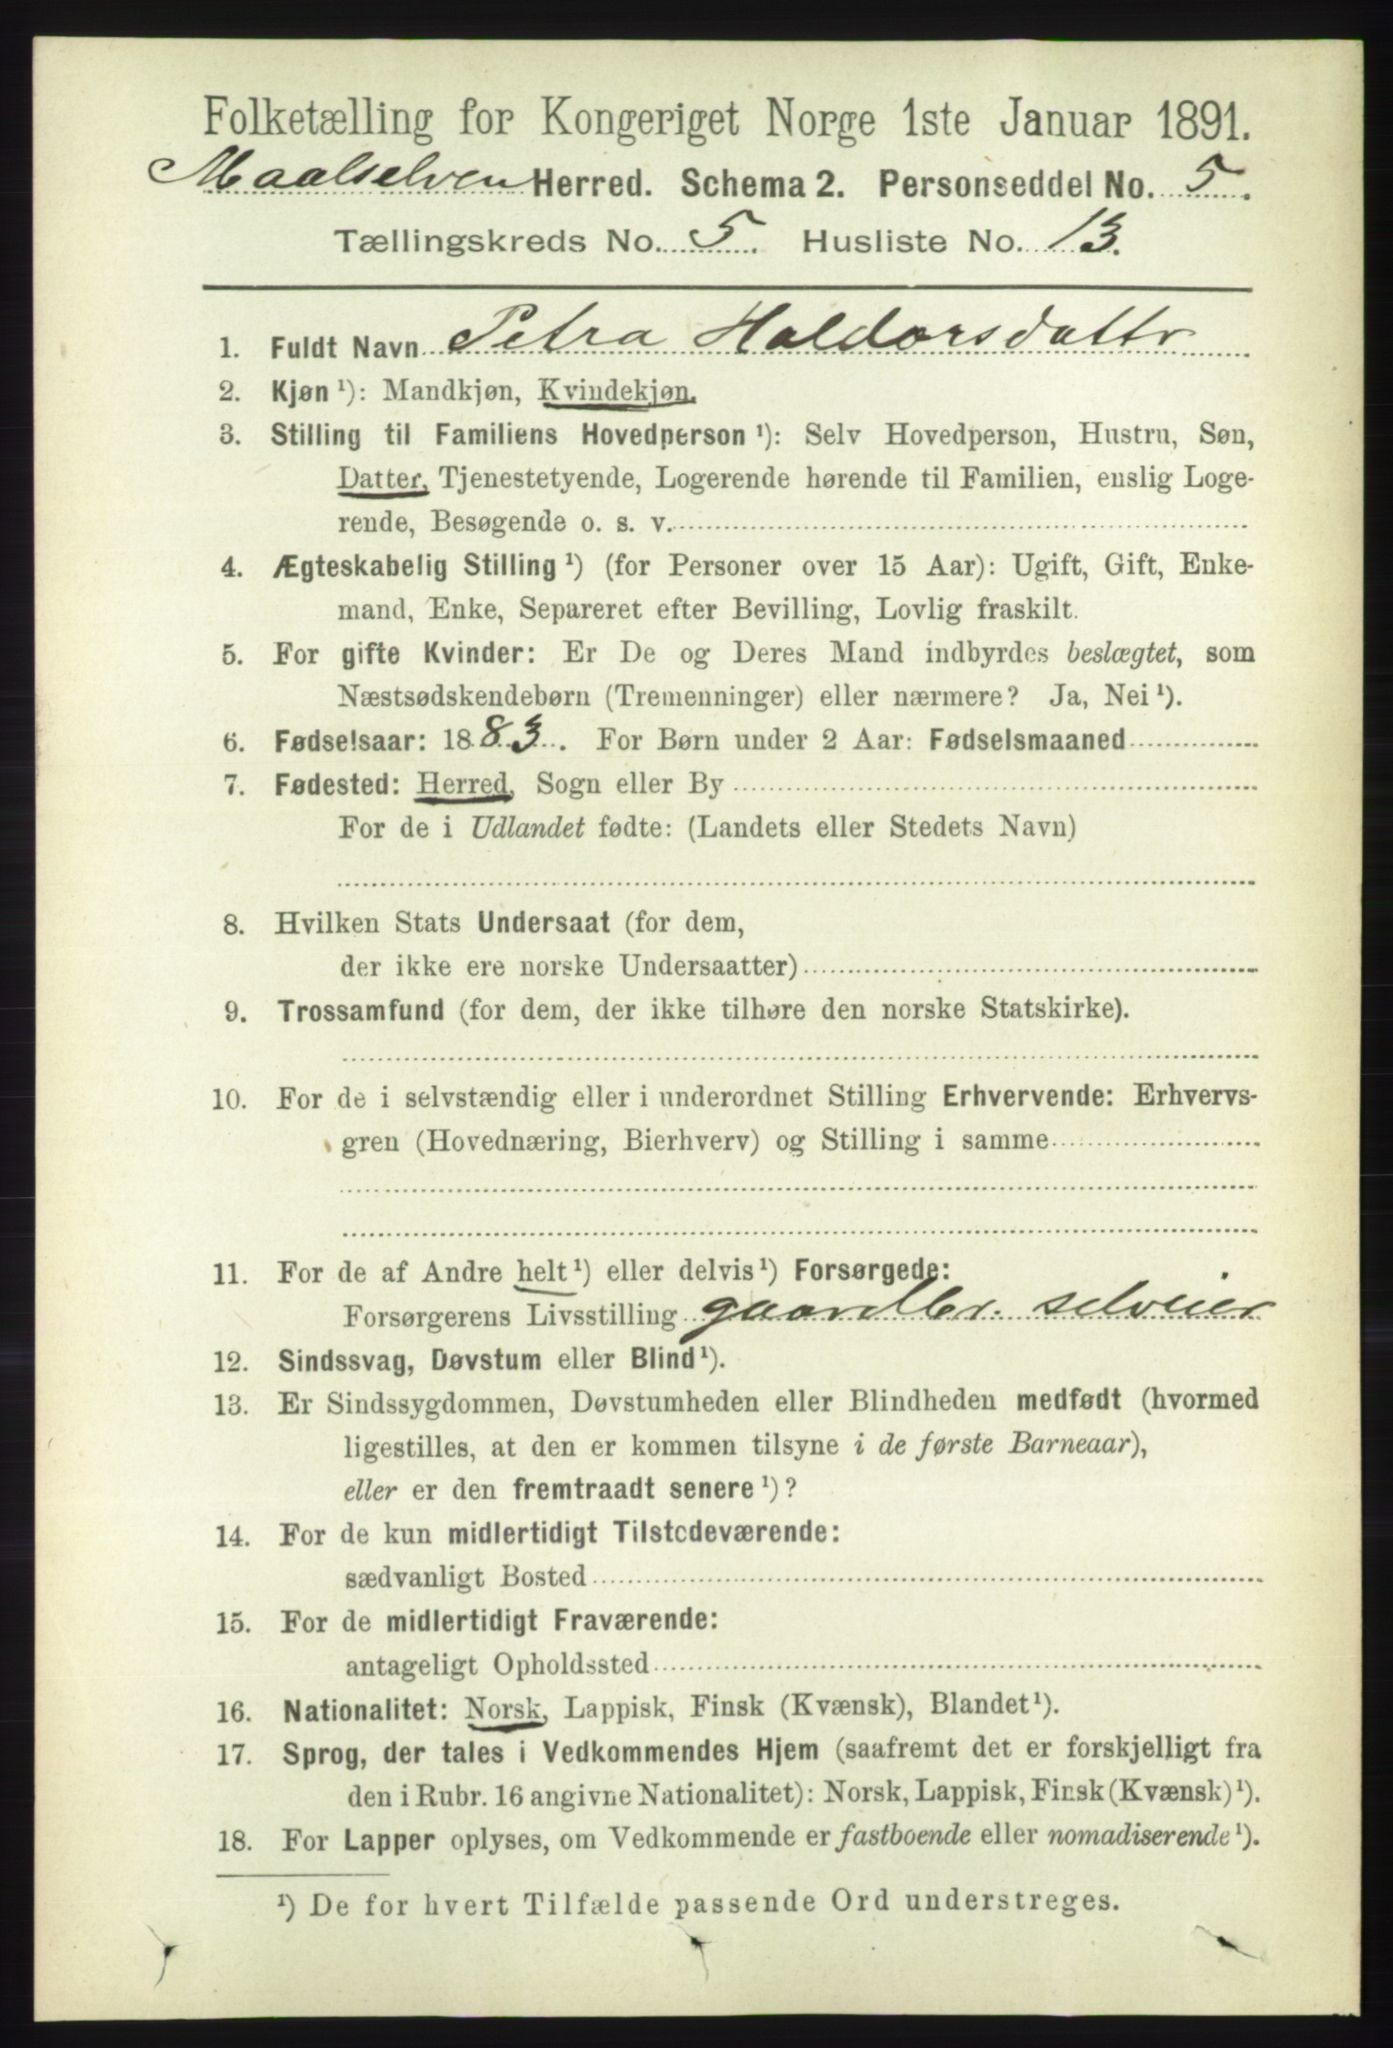 Folketælling for Kongeriget Norge 1ste Januar 1891.
Maalselven Herred. Schema 2. Personseddel No. 5.
Tællingskreds No. 5. Husliste No. 13.
1. Fuldt Navn Petra Haldorsdattr
2. Kjøn ¹): Mandkjøn, Kvindekjøn.
3. Stilling til Familiens Hovedperson ¹): Selv Hovedperson, Hustru, Søn,
Datter, Tjenestetyende, Logerende hørende til Familien, enslig Loge-
rende, Besøgende o. s. v.
4. Ægteskabelig Stilling ¹) (for Personer over 15 Aar): Ugift, Gift, Enke-
mand, Enke, Separeret efter Bevilling, Lovlig fraskilt.
5. For gifte Kvinder: Er De og Deres Mand indbyrdes beslægtet, som
Næstsødskendebørn (Tremenninger) eller nærmere? Ja, Nei ¹).
6. Fødselsaar: 1883. For Børn under 2 Aar: Fødselsmaaned
7. Fødested: Herred, Sogn eller By
For de i Udlandet fødte: (Landets eller Stedets Navn)
8. Hvilken Stats Undersaat (for dem,
der ikke ere norske Undersaatter)
9. Trossamfund (for dem, der ikke tilhøre den norske Statskirke).
10. For de i selvstændig eller i underordnet Stilling Erhvervende: Erhvervs-
gren (Hovednæring, Bierhverv) og Stilling i samme
11. For de af Andre helt ¹) eller delvis ¹) Forsørgede:
Forsørgerens Livsstilling gaardbr. selveier
12. Sindssvag, Døvstum eller Blind ¹).
13. Er Sindssygdommen, Døvstumheden eller Blindheden medfødt (hvormed
ligestilles, at den er kommen tilsyne i de første Barneaar),
eller er den fremtraadt senere ¹)?
14. For de kun midlertidigt Tilstedeværende:
sædvanligt Bosted
15. For de midlertidigt Fraværende:
antageligt Opholdssted
16. Nationalitet: Norsk, Lappisk, Finsk (Kvænsk), Blandet ¹).
17. Sprog, der tales i Vedkommendes Hjem (saafremt det er forskjelligt fra
den i Rubr. 16 angivne Nationalitet): Norsk, Lappisk, Finsk (Kvænsk) ¹).
18. For Lapper oplyses, om Vedkommende er fastboende eller nomadiserende ¹).
¹) De for hvert Tilfælde passende Ord understreges.